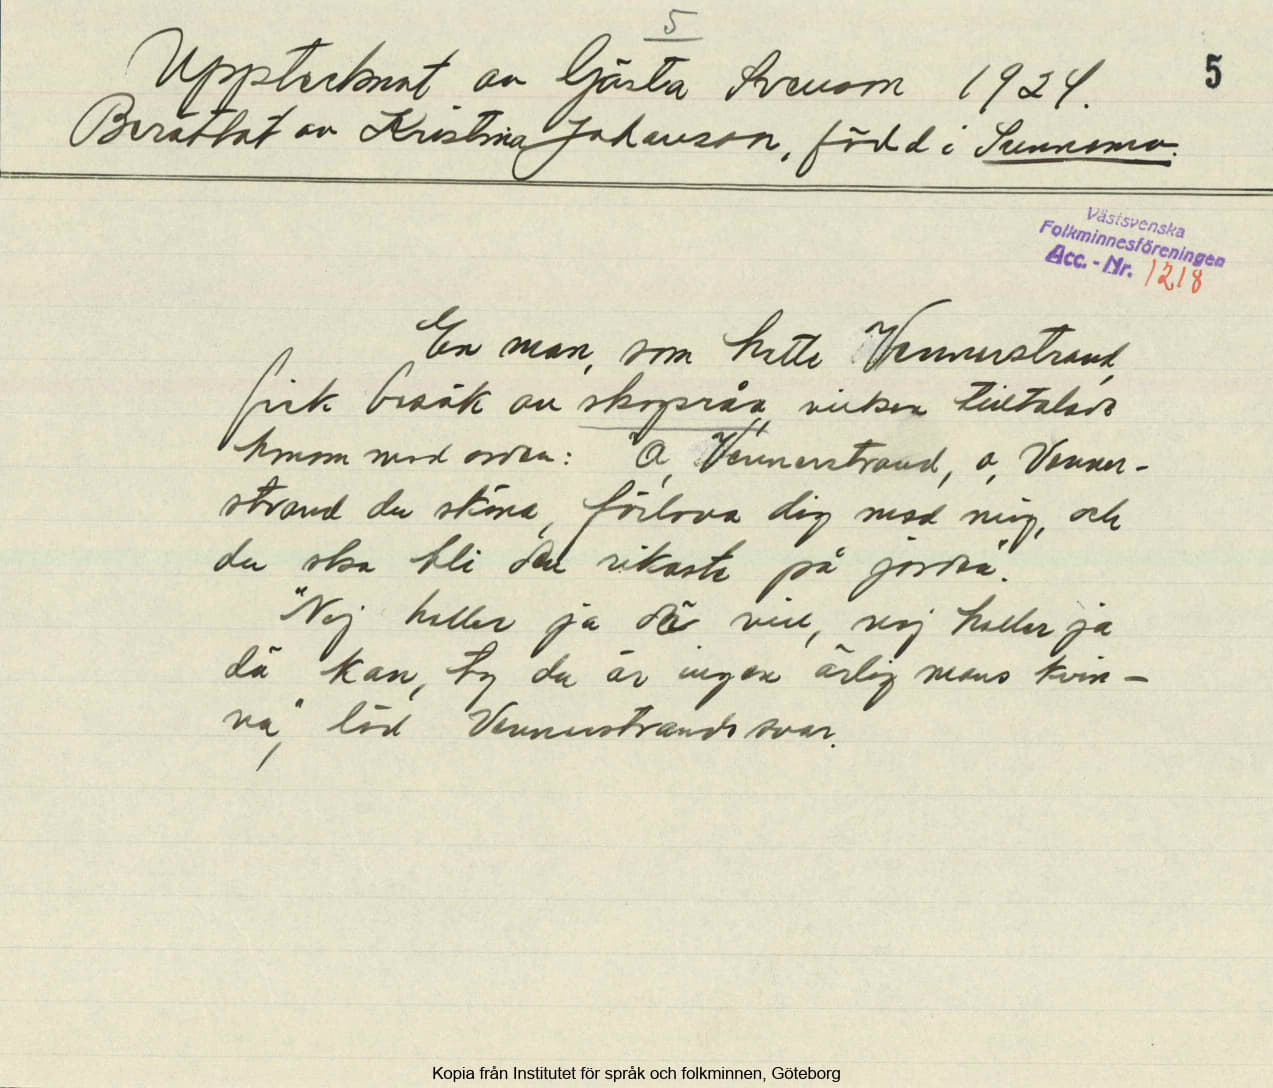 5
Upptecknat av Gösta Svenson 1924.
5
Berättat av Kristina Johanson, född i Sunnemo.
Västsvenska
Folkminnesföreningen
Acc. - Nr. 1218
En man, som hette Vennerstrand,
fick besök av skogsråa, vilken tilltalade
honom med orden: "O, Vennerstrand, o, Venner-
strand du sköna, förlova dig med mig, och
du ska bli den rikaste på jorden".
"Nej heller ja dä vill, nej heller ja
dä kan, ty du är ingen ärlig mans kvin-
na", löd Vennerstrands svar.
Kopia från Institutet för språk och folkminnen, Göteborg